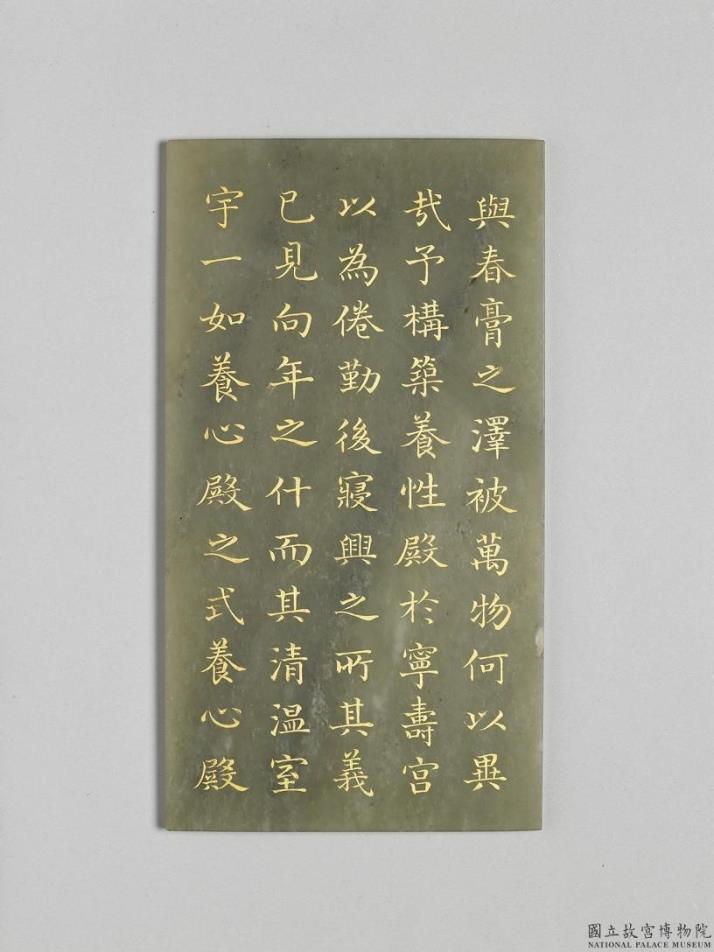 與春膏之澤被萬物何以異
哉予構築養性殿於寧壽宮
以為倦勤後寢興之所其義
已見向年之什而其清温室
宇一如養心殿之式養心殿
國立故宮博物院
NATIONAL PALACE MUSEUM